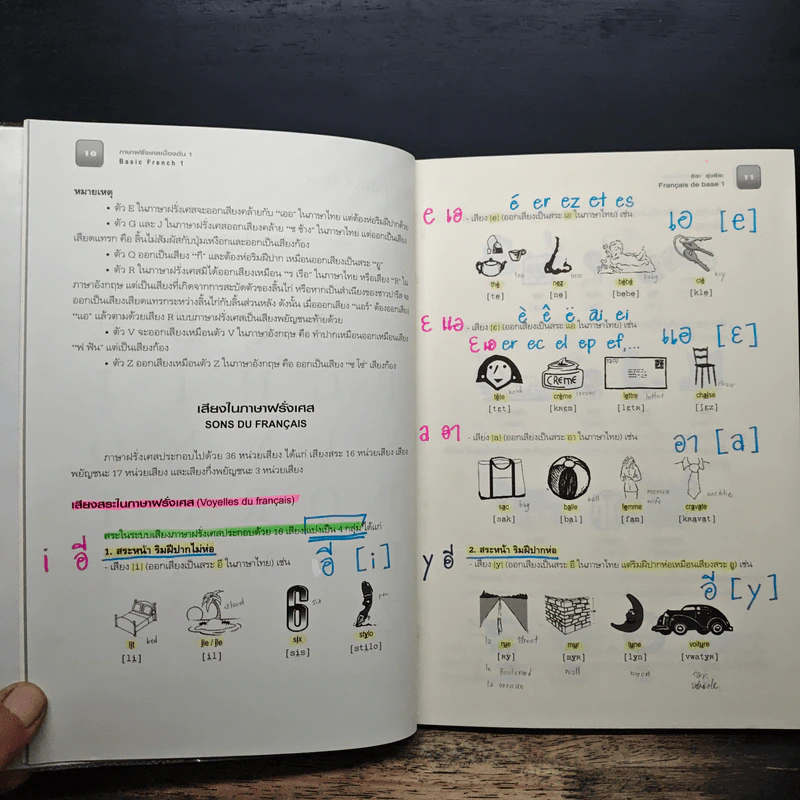 10
ภาษาฝรั่งเศสเบื้องต้น 1
Basic French 1
หมายเหตุ
• ตัว E ในภาษาฝรั่งเศสจะออกเสียงคล้ายกับ "เออ" ในภาษาไทย แต่ต้องห่อริมฝีปากด้วย
• ตัว G และ J ในภาษาฝรั่งเศสออกเสียงคล้าย "ช ช้าง" ในภาษาไทย แต่ออกเป็นเสียง
เสียดแทรก คือ ลิ้นไม่สัมผัสกับปุ่มเหงือกและออกเป็นเสียงก้อง
• ตัว Q ออกเป็นเสียง "กี" และต้องห่อริมฝีปาก เหมือนออกเสียงเป็นสระ "อู"
• ตัว R ในภาษาฝรั่งเศสมิได้ออกเสียงเหมือน "ร เรือ" ในภาษาไทย หรือเสียง "R" ใน
ภาษาอังกฤษ แต่เป็นเสียงที่เกิดจากการสะบัดตัวของลิ้นไก่ หรือหากเป็นสำเนียงของชาวปารีสจะ
ออกเป็นเสียงเสียดแทรกระหว่างลิ้นไก่กับลิ้นส่วนหลัง ดังนั้น เมื่อออกเสียง "แอร์" ต้องออกเสียง
"แอ" แล้วตามด้วยเสียง R แบบภาษาฝรั่งเศสเป็นเสียงพยัญชนะท้ายด้วย
• ตัว V จะออกเสียงเหมือนตัว V ในภาษาอังกฤษ คือ ทำปากเหมือนออกเหมือนเสียง
"ฟ ฟัน" แต่เป็นเสียงก้อง
• ตัว Z ออกเสียงเหมือนตัว Z ในภาษาอังกฤษ คือ ออกเป็นเสียง "ซ โซ่" เสียงก้อง
เสียงในภาษาฝรั่งเศส
SONS DU FRANÇAIS
ภาษาฝรั่งเศสประกอบไปด้วย 36 หน่วยเสียง ได้แก่ เสียงสระ 16 หน่วยเสียง เสียง
พยัญชนะ 17 หน่วยเสียง และเสียงกึ่งพยัญชนะ 3 หน่วยเสียง
เสียงสระในภาษาฝรั่งเศส (Voyelles du français)
สระในระบบเสียงภาษาฝรั่งเศสประกอบด้วย 16 เสียง แบ่งเป็น 4 กลุ่ม ได้แก่
1. สระหน้า ริมฝีปากไม่ห่อ
i อี - เสียง [i] (ออกเสียงเป็นสระ อี ในภาษาไทย) เช่น อี [i]
island six pen
6
lit bed île / ile six stylo
[li] [il] [sis] [stilo]
11
Français de base 1
é er ez et es
e เอ - เสียง [e] (ออกเสียงเป็นสระ เอ ในภาษาไทย) เช่น เอ [e]
tea nose baby key
thé nez bébé clé
[te] [ne] [bebe] [kle]
è ê ë ai, ei
ɛ แอ - เสียง [ɛ] (ออกเสียงเป็นสระ แอ ในภาษาไทย) เช่น แอ [ɛ]
er ec el ep ef,...
CREME
head cream letter chair
tête crème lettre chaise
[tɛt] [kRɛm] [lɛtR] [ʃɛz]
a อา - เสียง [a] (ออกเสียงเป็นสระ อา ในภาษาไทย) เช่น อา [a]
bag ball woman wife necktie
sac balle femme cravate
[sak] [bal] [fam] [kRavat]
2. สระหน้า ริมฝีปากห่อ
y อี - เสียง [y] (ออกเสียงเป็นสระ อี ในภาษาไทย แต่ริมฝีปากห่อเหมือนเสียงสระ อู) เช่น
อี [y]
la rue street mur lune voiture
[Ry] [myR] [lyn] [vwatyR]
le Boulevard wall moon car
la avenue vehicle